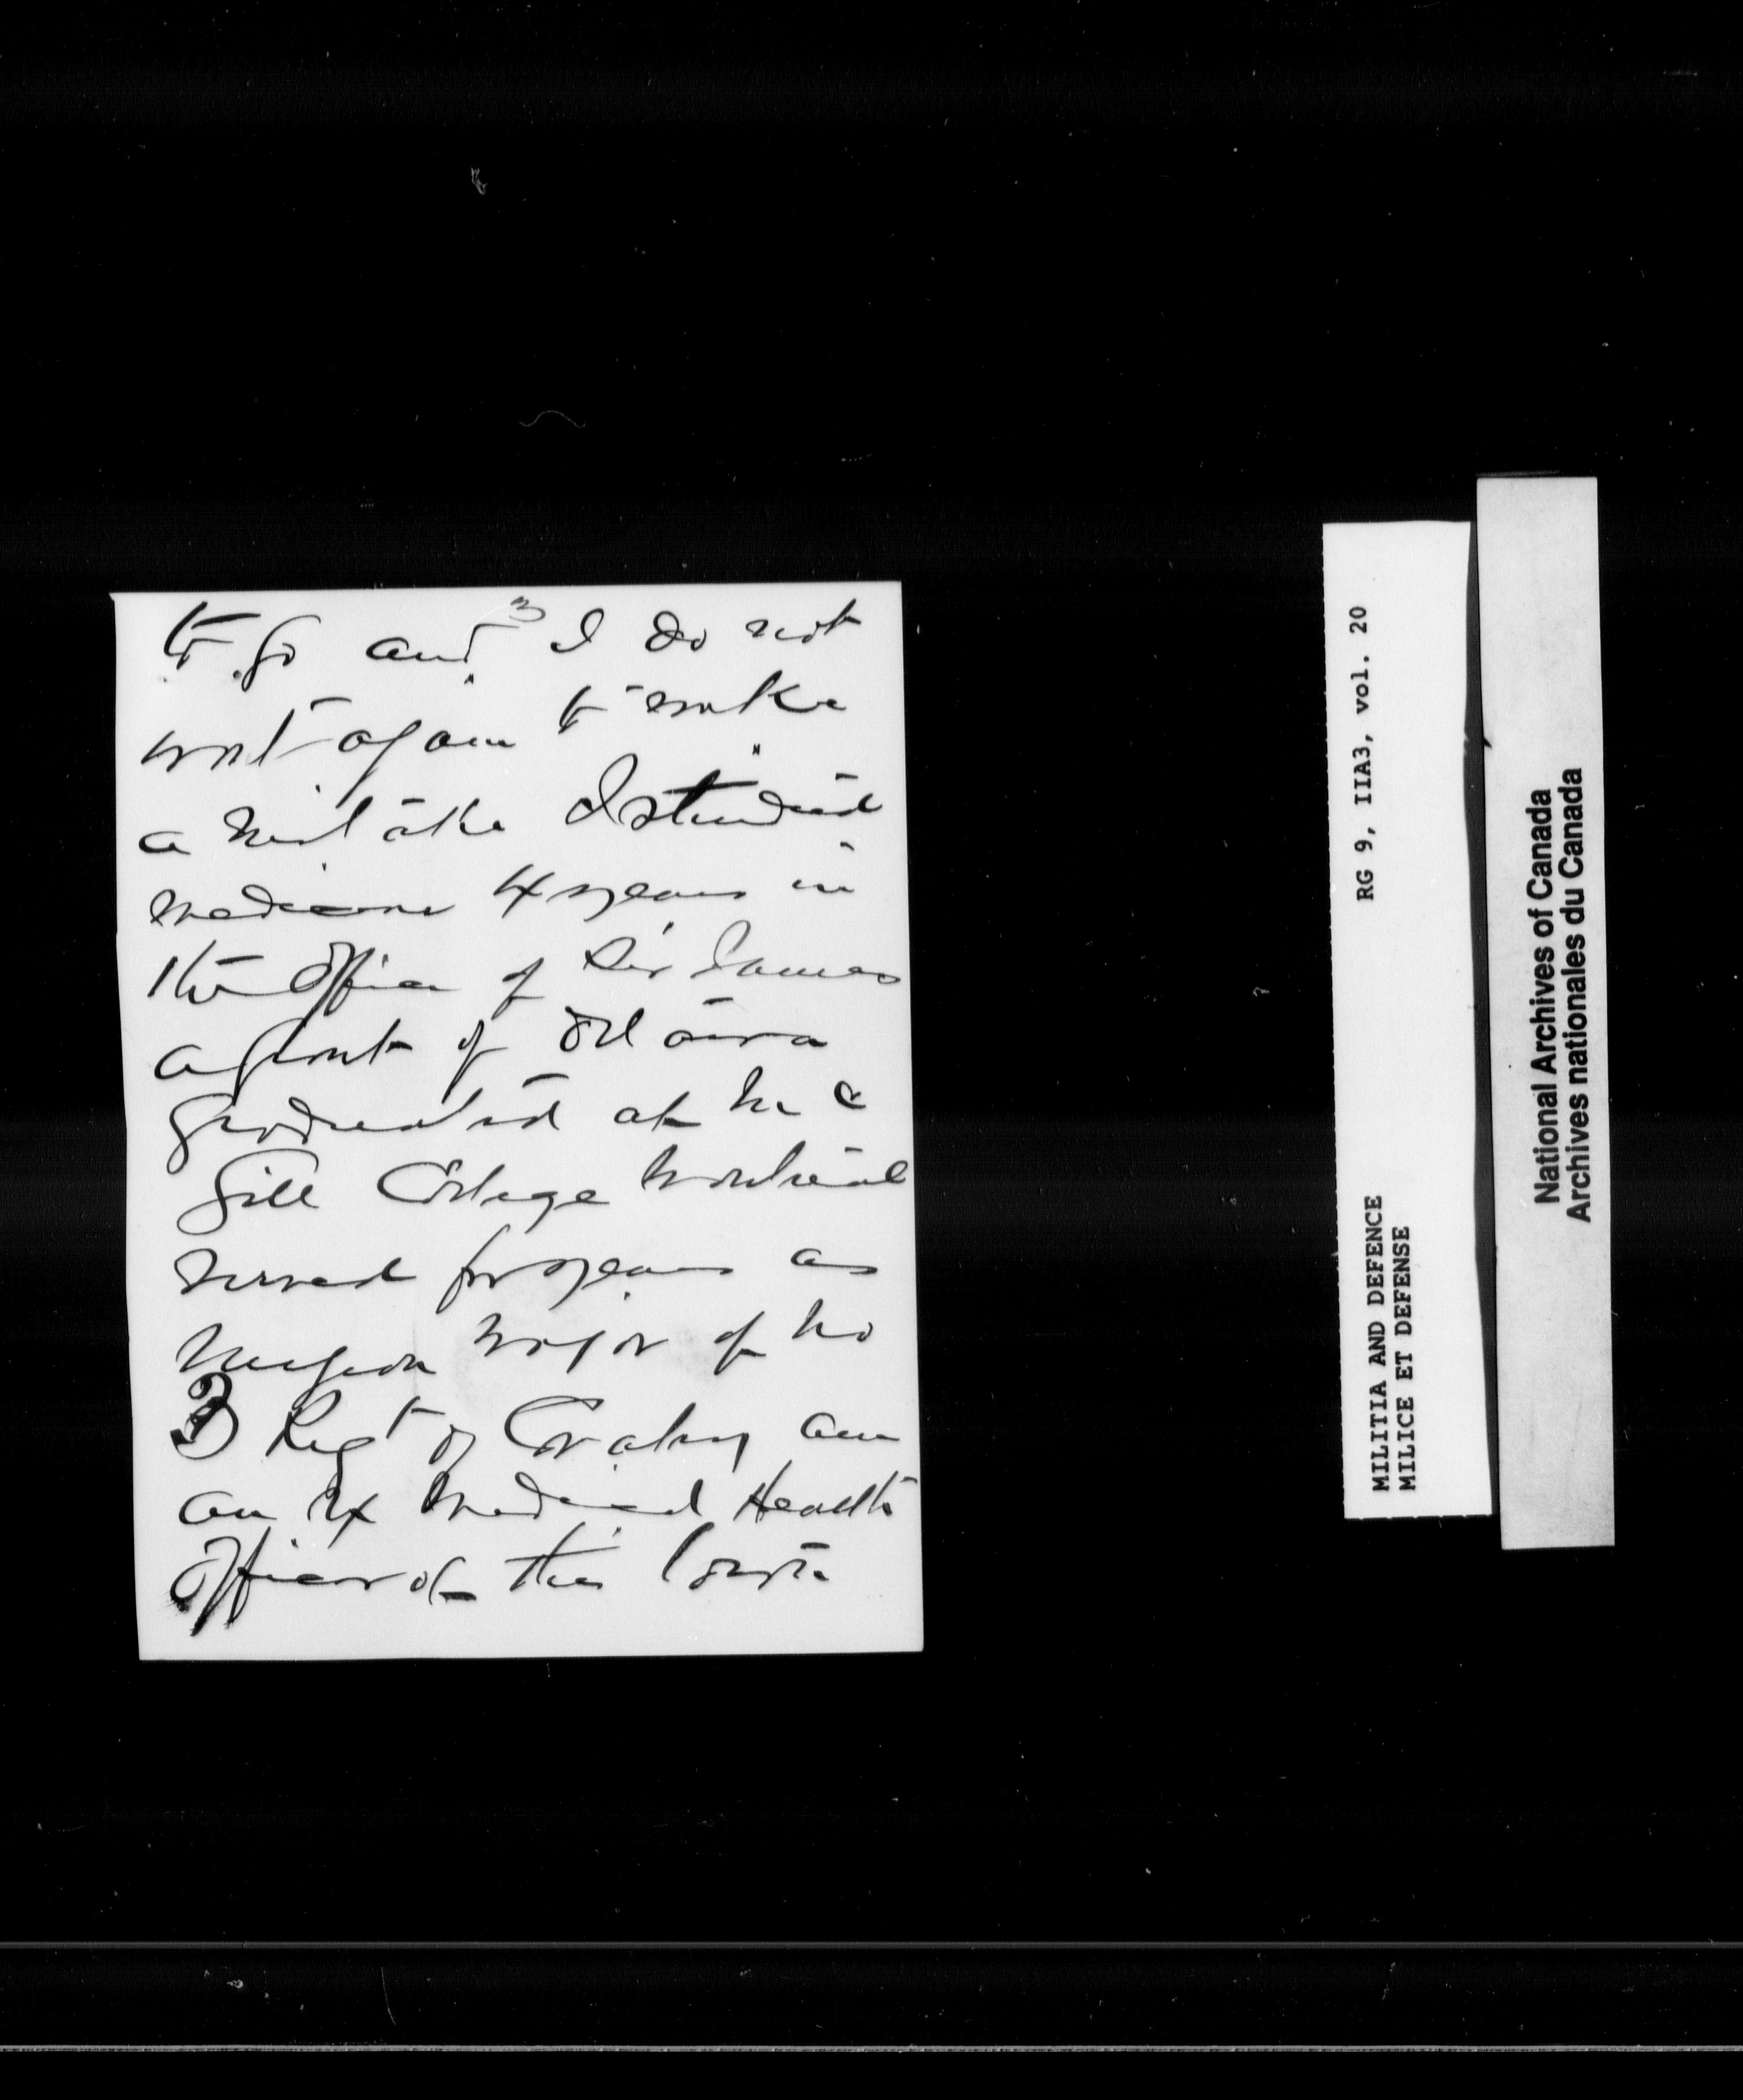 3
to go and I do not
want again to make
a mistake I studied
medicine 4 years in
the office of Sir James
a Grant of Ottawa
graduated at Mc
Gill College Montreal
served for years as
surgeon major of No
3 Regt of Cavalry am
an ex medical Health
officer of this
RG 9, IIA3, vol. 20
MILITIA AND DEFENCE
MILICE ET DEFENSE
National Archives of Canada
Archives nationales du Canada